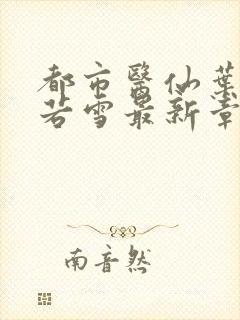 都市醫仙葉
若雪最新章
南音然